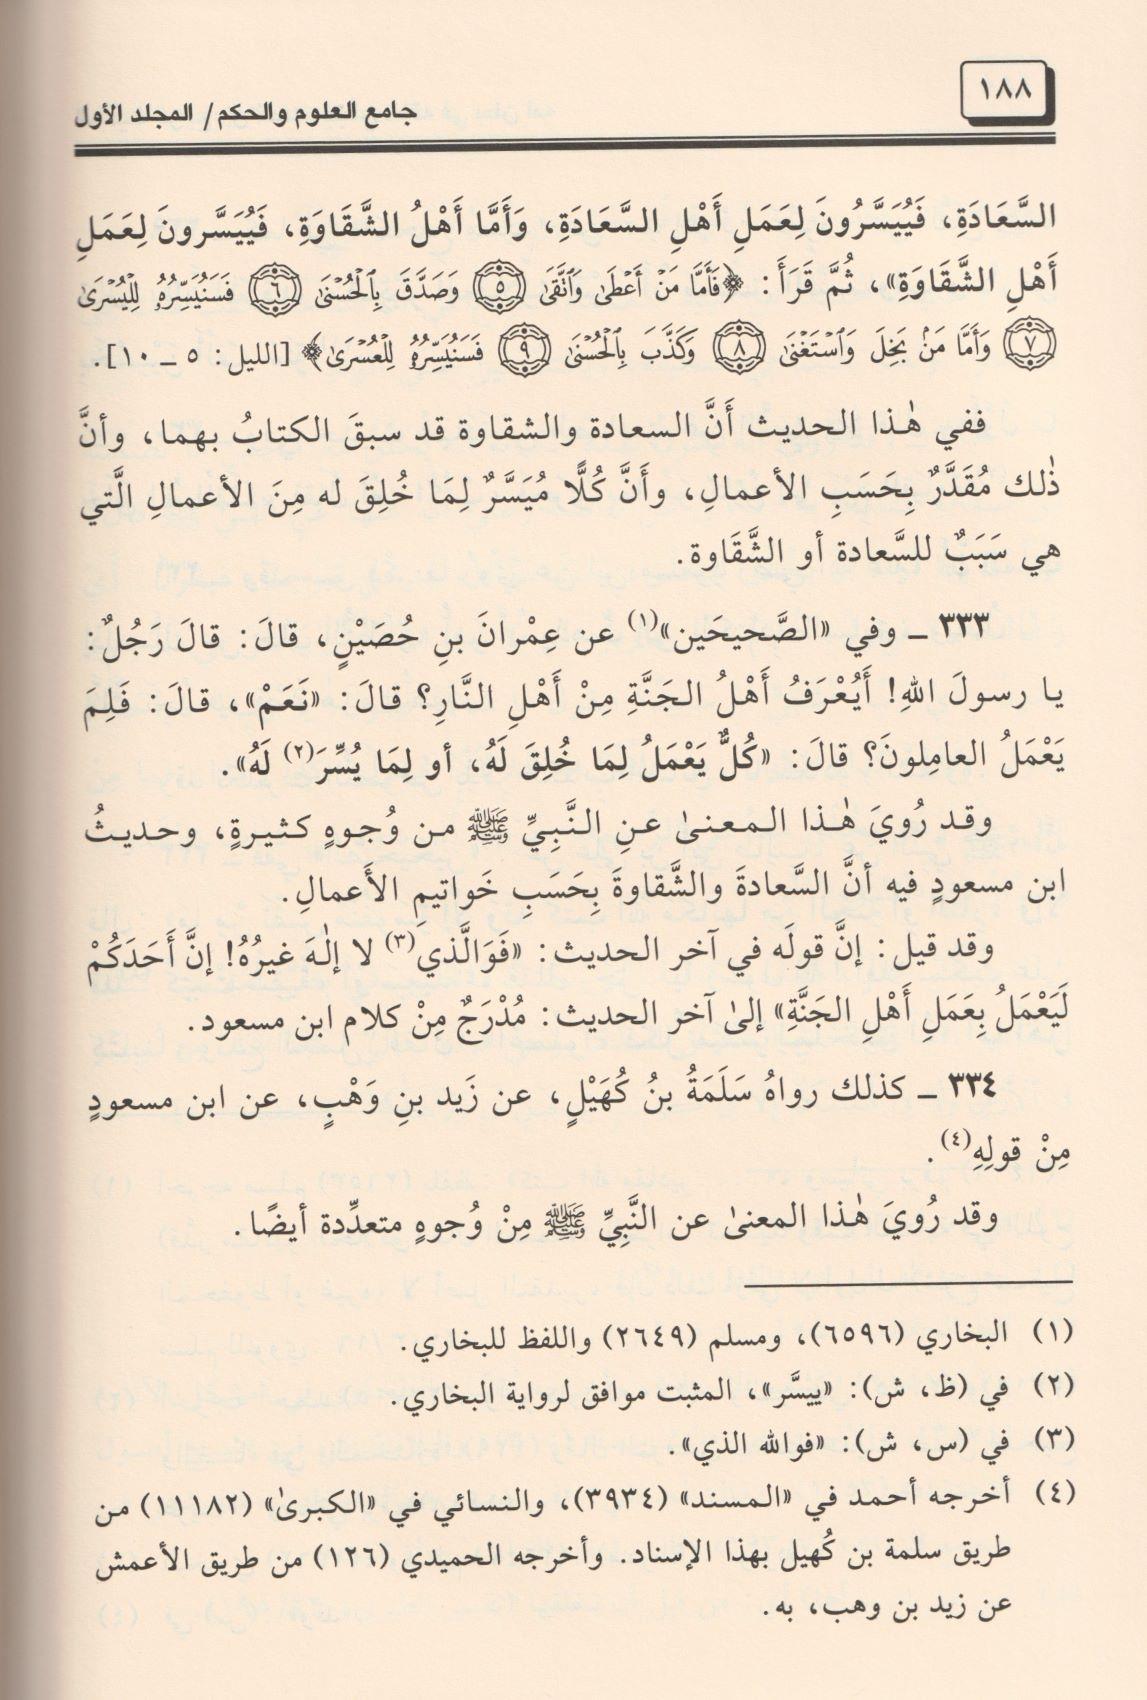 ١٨٨
جامع العلوم والحكم/ المجلد الأول
السَّعَادَةِ، فَيُيَسَّرُونَ لِعَمَلِ أَهْلِ السَّعَادَةِ، وَأَمَّا أَهْلُ الشَّقَاوَةِ، فَيُيَسَّرونَ لِعَمَلِ
أَهْلِ الشَّقَاوَةِ»، ثُمَّ قَرَأَ: ﴿فَأَمَّا مَنْ أَعْطَىٰ وَاتَّقَىٰ ٥ وَصَدَّقَ بِالْحُسْنَىٰ ٦ فَسَنُيَسِّرُهُۥ لِلْيُسْرَىٰ
٧ وَأَمَّا مَنۢ بَخِلَ وَاسْتَغْنَىٰ ٨ وَكَذَّبَ بِالْحُسْنَىٰ ٩ فَسَنُيَسِّرُهُۥ لِلْعُسْرَىٰ﴾ [الليل: ٥ ـ ١٠].
ففي هٰذا الحديث أَنَّ السعادة والشقاوة قد سبقَ الكتابُ بهما، وأنَّ
ذٰلك مُقَدَّرٌ بِحَسَبِ الأعمالِ، وأَنَّ كُلًّا مُيَسَّرٌ لِمَا خُلِقَ له مِنَ الأعمالِ الَّتي
هي سَبَبٌ للسَّعادة أو الشَّقَاوة.
٣٣٣ ـ وفي «الصَّحيحَين»(١) عن عِمْرانَ بنِ حُصَيْنٍ، قالَ: قالَ رَجُلٌ:
يا رسولَ اللهِ! أَيُعْرَفُ أَهْلُ الجَنَّةِ مِنْ أَهْلِ النَّارِ؟ قالَ: «نَعَمْ»، قالَ: فَلِمَ
يَعْمَلُ العامِلونَ؟ قالَ: «كُلٌّ يَعْمَلُ لِمَا خُلِقَ لَهُ، أو لِمَا يُسِّرَ(٢) لَهُ».
وقد رُويَ هٰذا المعنىٰ عنِ النَّبِيِّ ﷺ من وُجوهٍ كثيرةٍ، وحديثُ
ابن مسعودٍ فيه أنَّ السَّعادةَ والشَّقاوةَ بِحَسَبِ خَواتيمِ الأَعمالِ.
وقد قيل: إنَّ قولَه في آخر الحديث: «فَوَالَّذي(٣) لا إلٰهَ غيرُهُ! إنَّ أَحَدَكُمْ
لَيَعْمَلُ بِعَمَلِ أَهْلِ الجَنَّةِ» إلىٰ آخر الحديث: مُدْرَجٌ مِنْ كلام ابن مسعود.
٣٣٤ ـ كذلك رواهُ سَلَمَةُ بنُ كُهَيْلٍ، عن زَيد بنِ وَهْبٍ، عن ابن مسعودٍ
مِنْ قولِهِ(٤).
وقد رُويَ هٰذا المعنىٰ عن النَّبِيِّ ﷺ مِنْ وُجوهٍ متعدِّدة أيضًا.
(١) البخاري (٦٥٩٦)، ومسلم (٢٦٤٩) واللفظ للبخاري.
(٢) في (ظ، ش): «ييسَّر»، المثبت موافق لرواية البخاري.
(٣) في (س، ش): «فوالله الذي».
(٤) أخرجه أحمد في «المسند» (٣٩٣٤)، والنسائي في «الكبرىٰ» (١١١٨٢) من
طريق سلمة بن كُهيل بهذا الإسناد. وأخرجه الحميدي (١٢٦) من طريق الأعمش
عن زيد بن وهب، به.